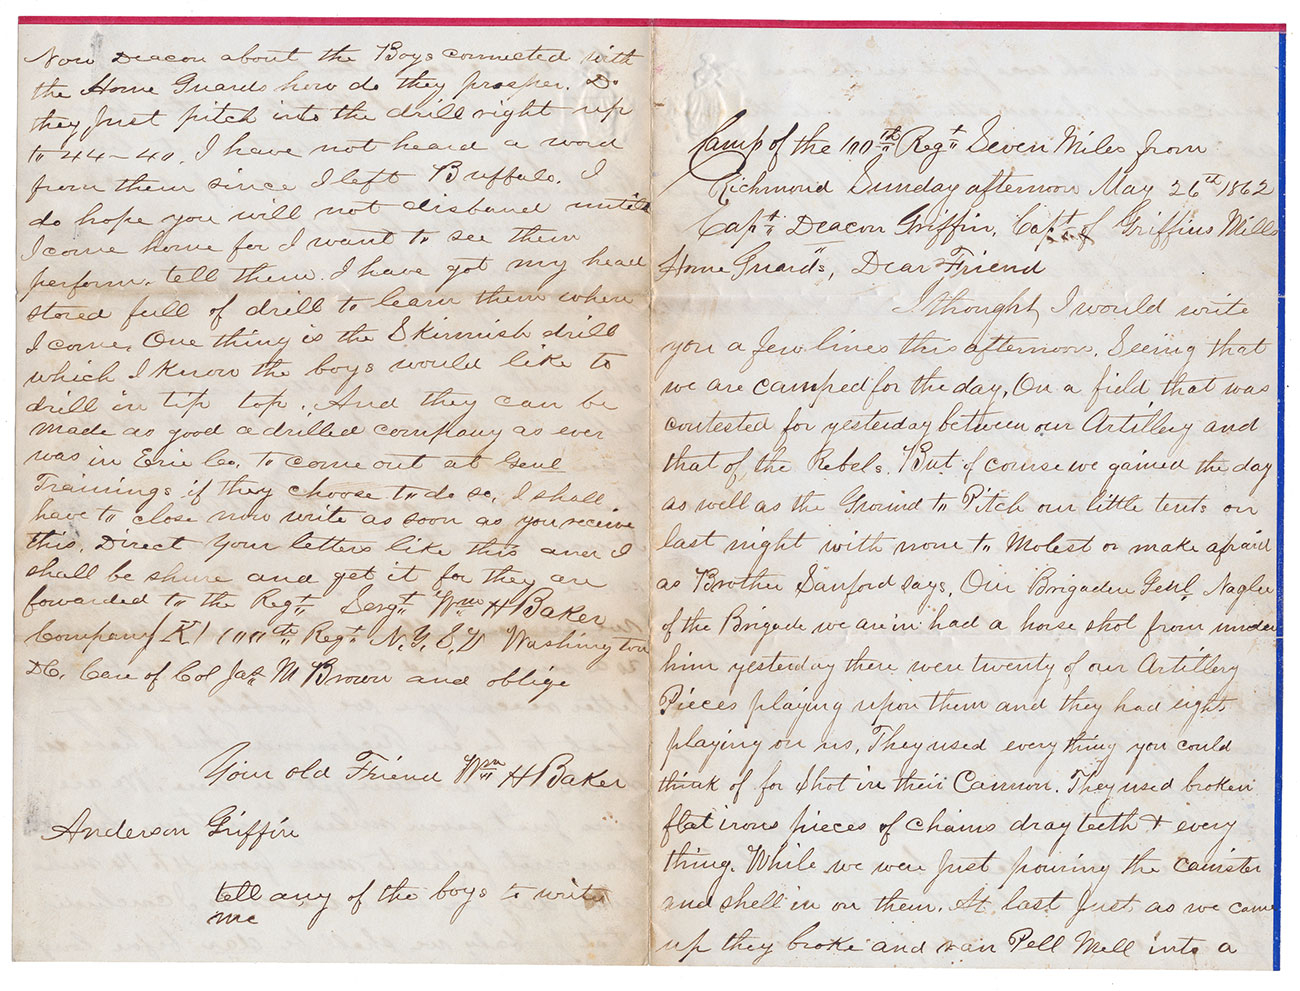 Now Deacon about the Boys connected with
the Home Guards how do they prosper. Do
they Just pitch into the drill right up
to 44-40. I have not heard a word
from them since I left Buffalo. I
do hope you will not disband untill
I come home for I want to see them
perform. tell them I have got my head
stored full of drill to learn them when
I come. One thing is the Skirmish drill
which I know the boys would like to
drill in tip top. And they can be
made as good a drilled company as ever
was in Erie Co. to come out at Genl
Trainings if they choose to do so. I shall
have to close now write as soon as you receive
this. Direct Your letters like this and I
shall be shure and get it for they are
forwarded to the Regt Sergt Wm H Baker
Company K 100th Regt N.Y.S.V Washington
DC. Care of Col Jas M Brown and oblige
Your old Friend Wm H Baker
Anderson Griffin
tell any of the boys to write
me
Camp of the 100th Regt Seven Miles from
Richmond Sunday afternoon May 26th 1862
Capt Deacon Griffin, Capt of Griffins Mills
Home Guards, Dear Friend
I thought I would write
you a few lines this afternoon. Seeing that
we are camped for the day. On a field that was
contested for yesterday between our Artillery and
that of the Rebels. But of course we gained the day
as well as the Ground to Pitch our little tents on
last night with none to Molest or make afraid
as Brother Sanford says. Our Brigadeer Genl. Naglee
of the Brigade we are in had a horse shot from under
him yesterday there were twenty of our Artillery
Pieces playing upon them and they had eight
playing on us. They used every thing you could
think of for Shot in their Cannon. They used broken
flat irons pieces of chains drag teeth & every
thing. While we were Just pouring the canister
and shell in on them. At last Just as we came
up they broke and ran Pell Mell into a